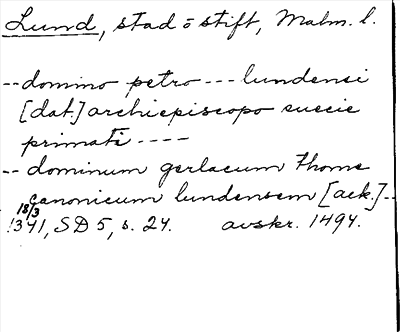 Lund, stad o stift, Malm. l.
-- domino petro --- lundensi
[dat.] archiepiscopo suecie
primati ----
-- dominum gerlacum thome
canonicum lundensem [ack.] --
18/3
1341, SD 5, s. 24. avskr. 1494.